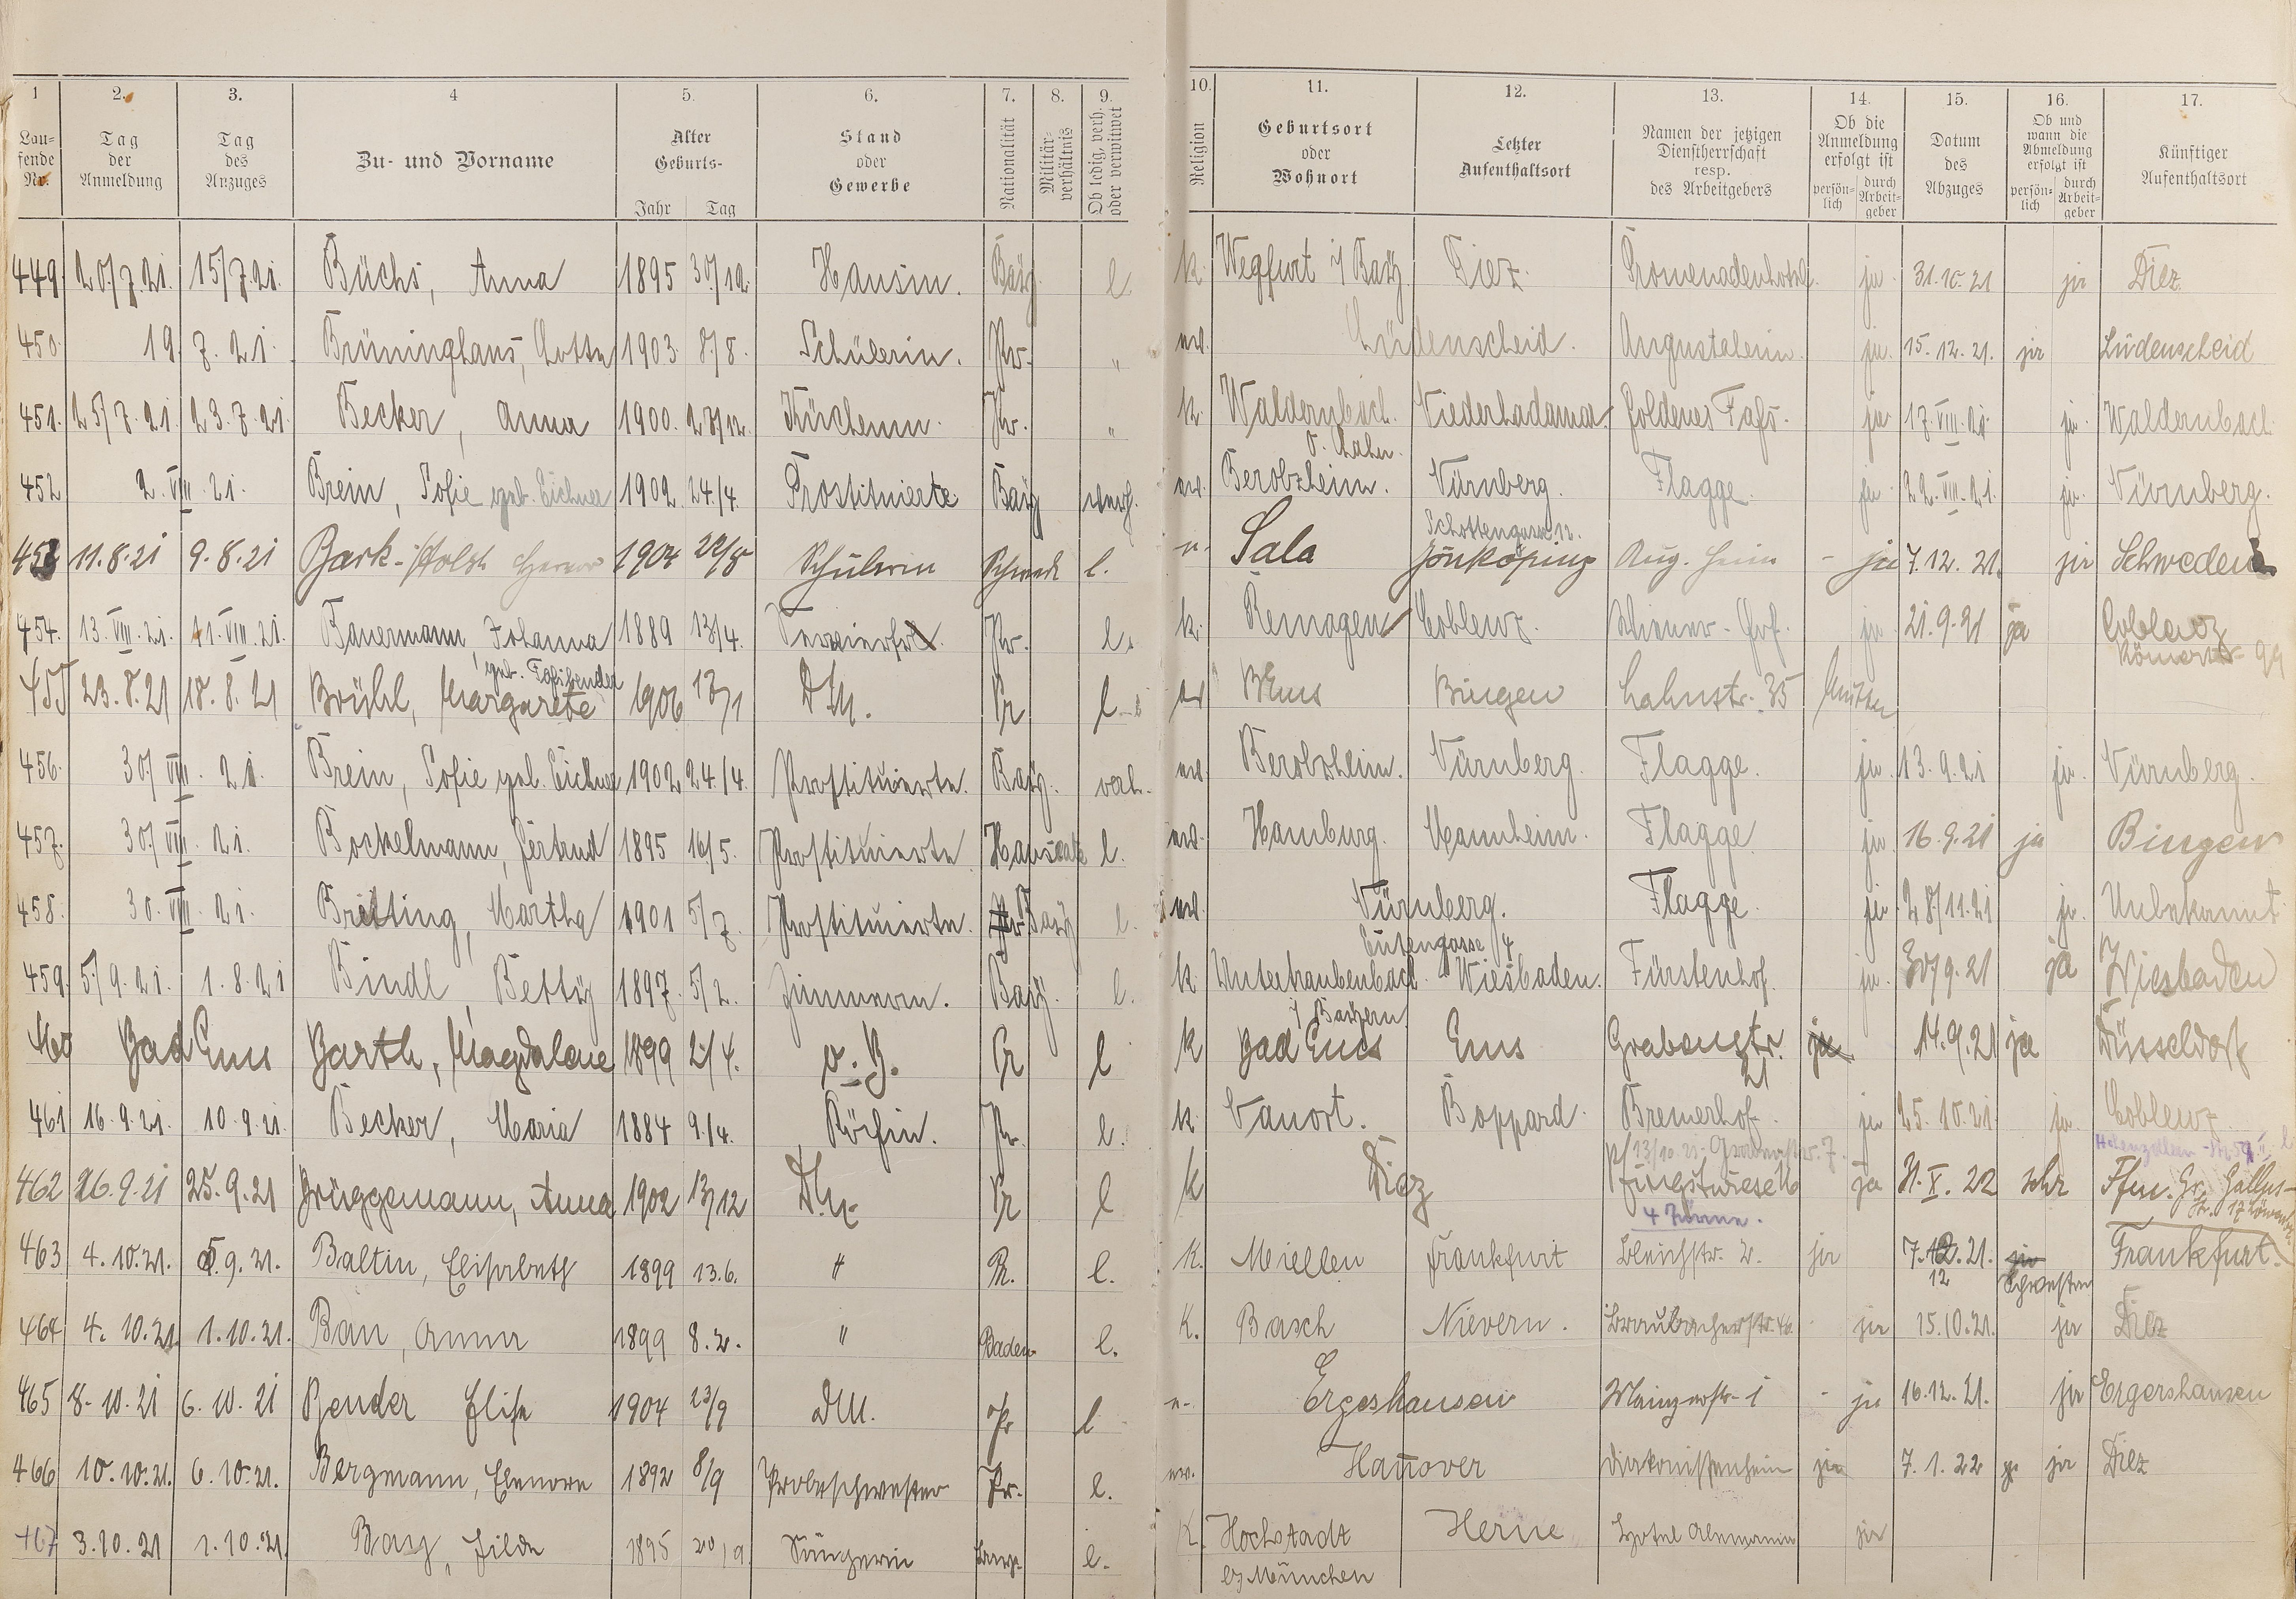 1 2. 3. 4 5. 6. 7. 8. 9. 10. 11. 12. 13. 14. 15. 16. 17.
Lau-fende Nr. Tag der Anmeldung Tag des Anzuges Zu- und Vorname Alter Geburts- Jahr Tag Stand oder Gewerbe Nationalität Militär-verhältnis Ob ledig, verh. oder verwitwet Religion Geburtsort oder Wohnort Letzter Aufenthaltsort Namen der jetzigen Dienstherrschaft resp. des Arbeitgebers Ob die Anmeldung erfolgt ist persön-lich durch Arbeit-geber Datum des Abzuges Ob und wann die Abmeldung erfolgt ist persön-lich durch Arbeit-geber Künftiger Aufenthaltsort
449 20./7.21. 15/7.21. Büchs, Anna 1895 30/12. Hausm. Bay. l. k. Wegfurt i/ Bay. Diez. Promenadenhotel. ja 31.10.21 ja Diez
450. 19. 7. 21. Brüninghaus, Lotte 1903. 8/8. Schülerin. Pr. " ev. Lüdenscheid. Augustaheim. ja. 15.12.21. ja Lüdenscheid
451. 25/7.21. 23.7.21. Becker, Anna 1900. 28/12. Küchenm. Pr. " k. Waldernbach. Niederhadamar. Goldenes Fass. ja 17.VIII.21. ja. Waldernbach.
O. Lahn.
452 2.VIII.21. Brein, Sofie geb. Eichner 1902. 24./4. Prostituierte Bay verh. ev. Berolzheim. Nürnberg. Flagge. ja 22.VIII.21. ja. Nürnberg.
Schottengasse 12.
453 11.8.21 9.8.21 Bark-Holst 1904 Schülerin Schwed l. Sala Jönköping Aug. Heim - ja 7.12.21. ja Schweden
454. 13.VIII.21. 11.VIII.21. Bauermann, Johanna 1889 13/4. Pr. l. k. Remagen Coblenz. ja 21.9.21 ja Coblenz
geb. Fassbender
455 23.8.21 18.8.21 Brühl, Margarete 1906 13/1 DM. Pr l ev BEms Bingen Lahnstr. 35 Mutter
456. 30/VIII. 21. Brein, Sofie geb. Eichner 1902 24./4. Prostituierte. Bay. verh. ev. Berolzheim. Nürnberg. Flagge. ja. 13.9.21 ja. Nürnberg.
457. 30/VIII. 21. Bockelmann, Gertrud 1895 16/5. Prostituierte Hanseate l. ev. Hamburg. Mannheim. Flagge ja 16.9.21 ja Bingen
458. 30.VIII. 21. Breitting, Martha 1901 5/7. Prostituierte. Pr Bay l. ev. Nürnberg. Flagge ja. 28/11.21 ja. Unbekannt.
Entengasse 4
459. 5/9.21. 1.8.21 Bindl, Betty 1897. 5/2. Zimmerm. Bay. l. k. Untertraubenbach Wiesbaden. Fürstenhof. ja. 30/9.21 ja Wiesbaden
i/ Bayern
460 Bad Ems Barth, Magdalene 1899 2/4. o. B. Pr l k Bad Ems Ems Grabenstr. 21 ja 14.9.21 ja Düsseldorf
461 16.9.21. 10.9.21. Becker, Maria 1884 9./4. Köchin. Pr. l. k. Boppard. Bremerhof. ja 25.10.21. ja. Coblenz
462 26.9.21 25.9.21 Brüggemann, Anna 1902 13/12 DM. Pr l k Diez Pfingstwiese 16 ja 31.X.22 Ffm. Gr. Gallus-
463 4.10.21. 5.9.21. Baltin, Elisabeth 1899 13.6. " Pr. l. k. Miellen Frankfurt Bleichstr. 2. ja 7.12.21. ja Frankfurt.
12 Schwester
464 4.10.21. 1.10.21. Bau, Anna 1899 8.2. " Baden. l. K. Basch Nievern. ja 15.10.21. ja Diez
465 8.10.21 6.10.21 Bender Elise 1904 23/9 DM. Pr l Ergeshausen Mainzerstr. 1 - ja 16.12.21. ja Ergershausen
466 10.10.21. 6.10.21. Bergmann, Elenore 1892 8/9 Probeschwester Pr. l. ev. Hannover Diakonissenheim ja 7.1.22 ja Diez
467 3.10.21 1.10.21. Hilde 1895 20/9 Sängerin l. K. Hochstadt Herne Hotel Alemannia ja
b/ München